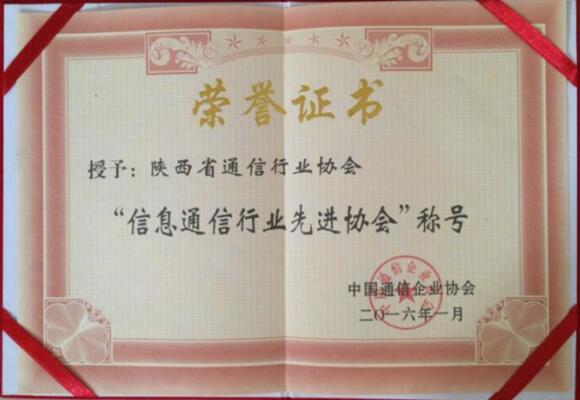 荣誉证书
授予：陕西省通信行业协会
“信息通信行业先进协会”称号
中国通信企业协会
二〇一六年一月